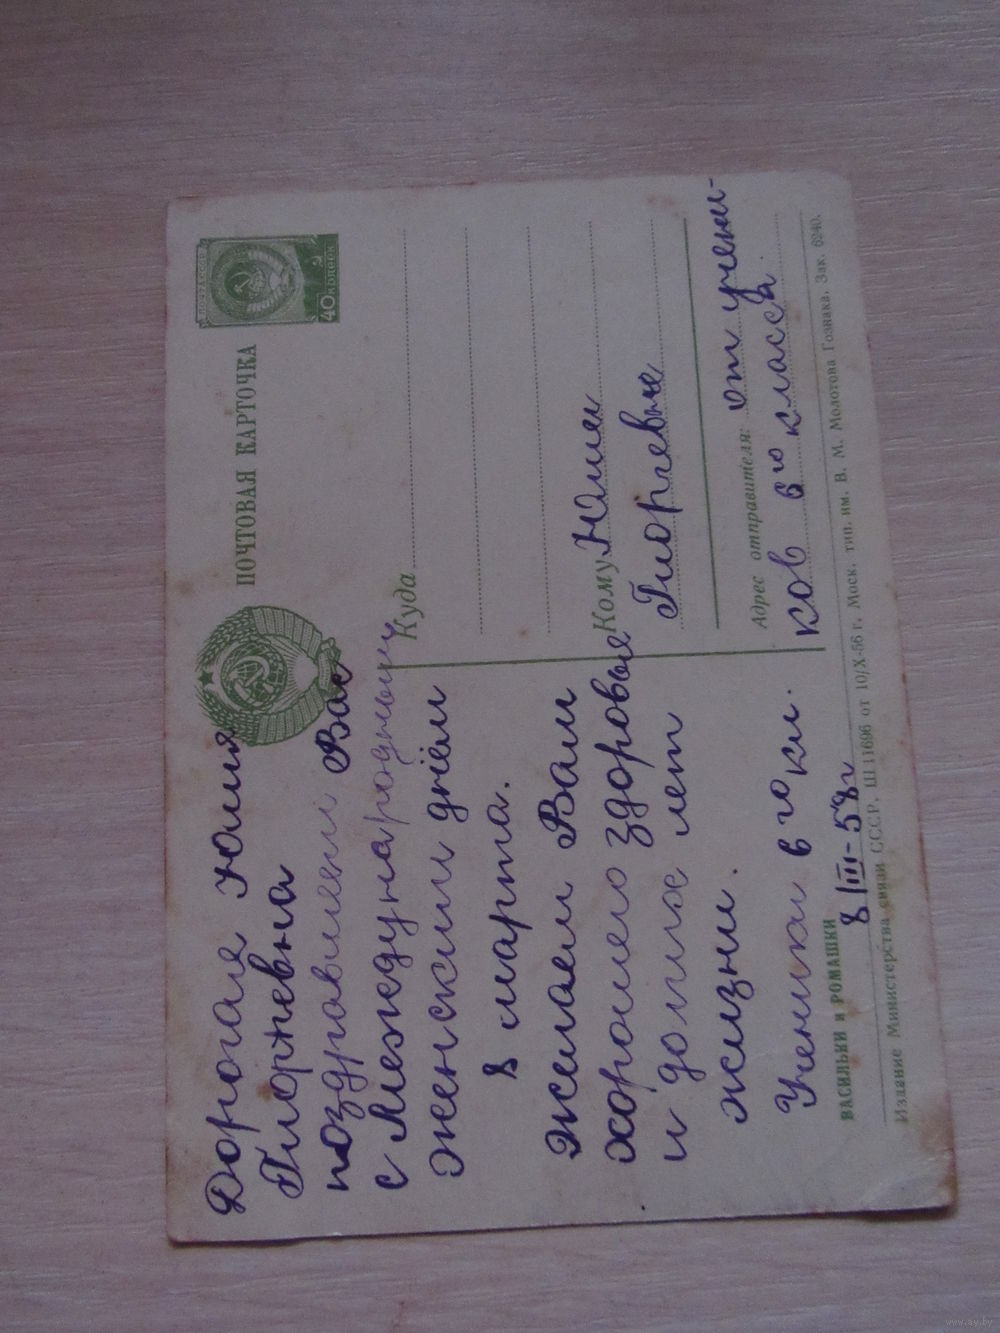 ПОЧТОВАЯ КАРТОЧКА
ПОЧТА СССР
40 КОПЕЕК
Дорогая Юлия
Гиоргевна
поздравляем Вас
с Международным
женским днём
8 марта.
Желаем Вам
хорошего здоровье
и долгое лет
жизни.
Ученики 6го кл.
8 III-58г
ВАСИЛЬКИ и РОМАШКИ
Куда
Кому Юлии
Гиоргевне
Адрес отправителя: от учени-
ков 6го класса.
Издание Министерства связи СССР. Ш 11696 от 10/X-56 г. Моск. тип. им. В. М. Молотова Гознака. Зак. 6240.
www.ay.by